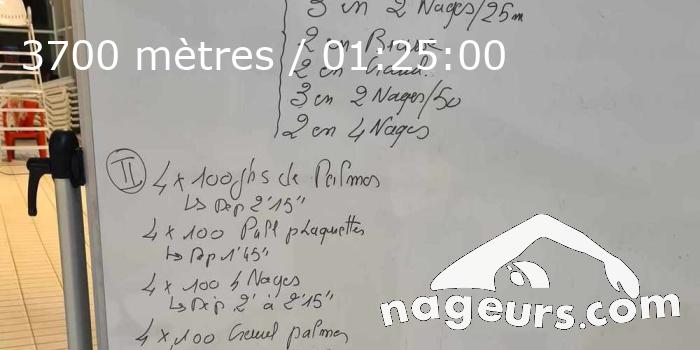 3 en 2 Nages/25m
3700 mètres / 01:25:00
2 en Brasse
2 en Crawl
3 en 2 Nages/50
2 en 4 Nages
II 4 x 100 jbs de Palmes
↳ Dep 2'15"
4 x 100 Pull plaquettes
↳ Dep 1'45"
4 x 100 4 Nages
↳ Dep 2' à 2'15"
4 x 100 Crawl palmes
nageurs.com